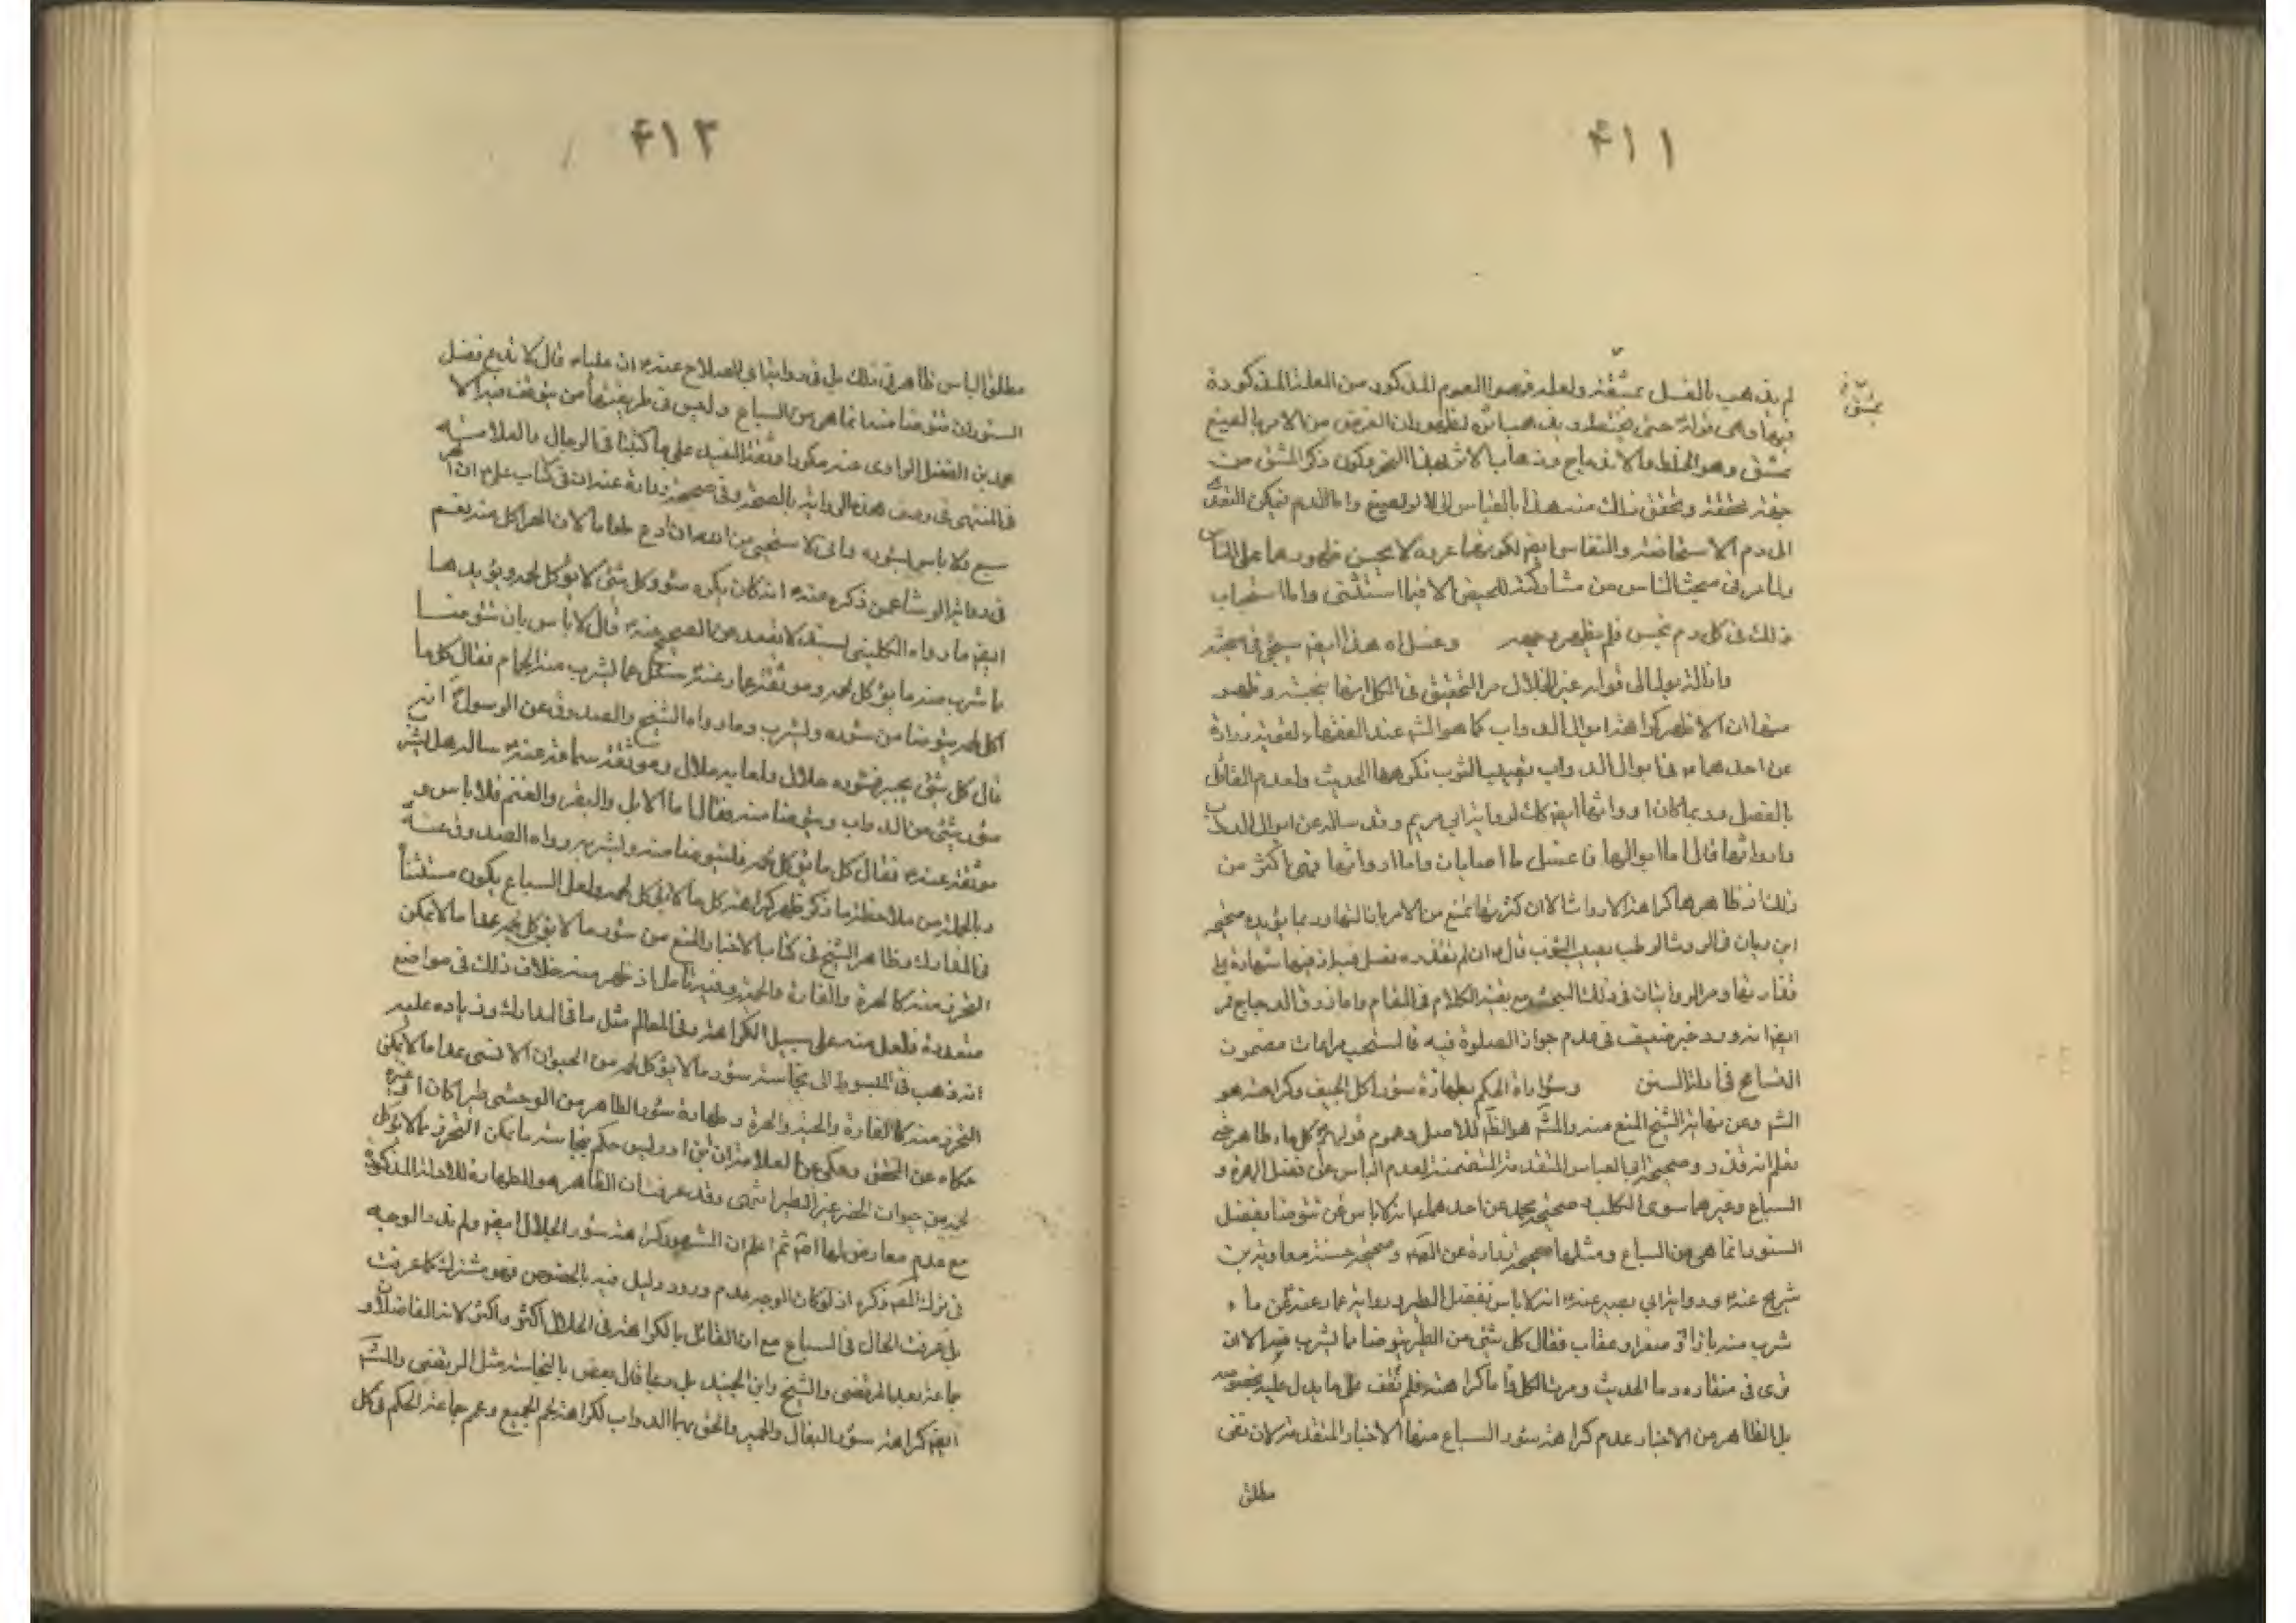 ۴۱۱
لم يذهب بالغسل بمشقة ولعله فهموا العموم المذكور من العلة المذكورة
بمشق
فيها وهى قوله حتى يختلط ويذهب اثره لظهور ان الغرض من الامر بالصبغ
بمشق وهو الخلط والاندماج وذهاب الاثر بهذا النحو وكون ذكر المشق من
جهة تحققه وتحقق ذلك منه هذا بالقياس الى لا لو لصبغ واما الدم فيمكن التعدى
الى دم الاستحاضة والنفاس ايضا لكونها عربه لا يحسن ظهورها على الناس
ولما مر فى مبحث النفاس من مشاركته للحيض الا فيما استثنى واما استحباب
ذلك فى كل دم نجس فلم يظهر وجهه وعنسل اه هذا ايضا سيجئ فى مبحثه
واما التزبول الى قوله عن الحلال من التحقيق فى الكل انها نجسة وظهر
منها ان الاظهر كراهة ابوال الدواب كما هو المشهور عند الفقهاء لقوية زرارة
عن احدهما فى ابوال الدواب تصيب الثوب فكرهها الحديث ولعدم القائل
بالفصل وربما كان اروائها ايضا كك لرواية ابى مريم وقد ساله عن ابوال الدواب
واروائها قال اما ابوالها فاغسل ما اصابك واما اروائها فهى اكثر من
ذلك اذ ظاهرها كراهة الارواث الا ان كثرتها تمنع من الامر بازالتها وربما يؤيده صحيحة
ابن رمان فى الروث الرطب يصيب الثوب قال ان لم تقذره فصل فيه اذ فيها شهادة على
تقاربها ومر الروايات فى ذلك البحث مع بقية الكلام فى المقام واما ذرق الدجاج فمر
ايضا انه ورد خبر ضعيف فى عدم جواز الصلوة فيه فالمستحب مراعات مضمون
التسامح فى ادلة السنن وسؤر اه الحكم بطهارة سؤر اكل الجيف وكراهته هو
المشهور وعن نهاية الشيخ المنع منه والمشهور هو الظاهر للاصل وعموم قوله كل ماء طاهر حتى
تعلم انه قذر وصحيحة ابى العباس المتقدمة المتضمنة لعدم الباس عن فضل الهرة و
السباع وغيرهما سوى الكلب وصحيحة محمد عن احدهما انه لا باس عن تتوضأ بفضل
السنور انما هى من السباع ومثلها صحيحة زرارة عن الصادق وصحيحة حسنة معاوية بن
شريح عنه ورواية ابى بصير عنه انه لا باس بفضل الطير ورواية عمار عنه عن ماء
شرب منه باز او صقر او عقاب فقال كل شئ من الطير يتوضأ مما يشرب منه الا ان
ترى فى منقاره دما الحديث ومرت الكل واما كراهته فلم نقف على ما يدل عليه بخصوصه
بل الظاهر من الاخبار عدم كراهة سؤر السباع منها الاخبار المتقدمة لان نفى
مطلق
۴۱۲
مطلق الباس ظاهر فى ذلك بل فى رواية ابى الصلاح عنه ان عليا قال لا تدع فضل
السنور ان تتوضأ منه انما هى من السباع وليس فى طريقها من يتوقف فيه الا
محمد بن الفضيل الراوى عنه مكررا وثقة المفيد على ما كتبنا فى الرجال بالعلامة
فى المنتهى فى وصف هذه الرواية بالصحة وفى صحيحة زرارة عنه ان فى كتاب على ان الهر
سبع ولا باس بسؤره وانى لاستحيى من الله ان ادع طعاما لان الهر اكل منه نعم
فى رواية الوشا عمن ذكره عنه انه كان يكره سؤر كل شئ لا يؤكل لحمه ويؤيدها
ايضا ما رواه الكلينى بسند لا يبعد عن الصحيح عنه قال لا باس بان تتوضأ
مما شرب منه ما يؤكل لحمه وموثقة عمار عنه سئل عما يشرب منه الحمام فقال كل ما
اكل لحمه يتوضأ من سؤره ويشرب وما رواه الشيخ والصدوق عن الرسول انه
قال كل شئ يجتر فسؤره حلال ولعابه حلال وموثقة سماعة عنه ساله هل يشرب
سؤر شئ من الدواب ويتوضأ منه فقال اما الابل والبقر والغنم فلا باس و
موثقة عنه فقال كل ما يؤكل لحمه فليتوضأ منه وليشربه ورواه الصدوق عنه
وبالجملة من ملاحظة ما ذكر ظهر كراهة كل ما لا يؤكل لحمه ولعل السباع يكون مستثناة
فى المدارك وظاهر الشيخ فى كتاب الاخبار المنع من سؤر ما لا يؤكل لحمه عدا ما لا يمكن
التحرز منه كالهرة والفارة والحية وفيه تأمل اذ ظهر منه خلاف ذلك فى مواضع
متعددة فلعل منعه على سبيل الكراهة وفى المعالم مثل ما فى المدارك وزياده عليه
انه ذهب فى المبسوط الى نجاسة سؤر ما لا يؤكل لحمه من الحيوان الانسى عدا ما لا يمكن
التحرز منه كالفارة والحية والهرة وطهارة سؤر الطاهر من الوحشى طيرا كان او غيره
حكاه عن المحقق وحكى عن العلامة ان ابن ادريس حكم بنجاسة ما يمكن التحرز مما لا يؤكل
لحمه من حيوان الحضر غير الطير انتهى وقد عرفت ان الظاهر هو الطهارة للادلة المذكورة
مع عدم معارض لها اصلا ثم اعلم ان المشهور كراهة سؤر الجلال ايضا ولم ندر الوجه
فى ترك المصنف ذكره اذ لو كان الوجه عدم ورود دليل فيه بالخصوص فهو مشترك كما عرفت
بل عرفت الحال فى السباع مع ان القائل بالكراهة فى الجلال اكثر واكثر لانه الفاضلان و
جماعة بعد المرتضى والشيخ وابن الجنيد بل ربما قال بعض بالنجاسة مثل المرتضى والمشهور
ايضا كراهة سؤر البغال والحمير والحق بهما الدواب لكراهة لحم الجميع وعمم جماعة الحكم فى كل